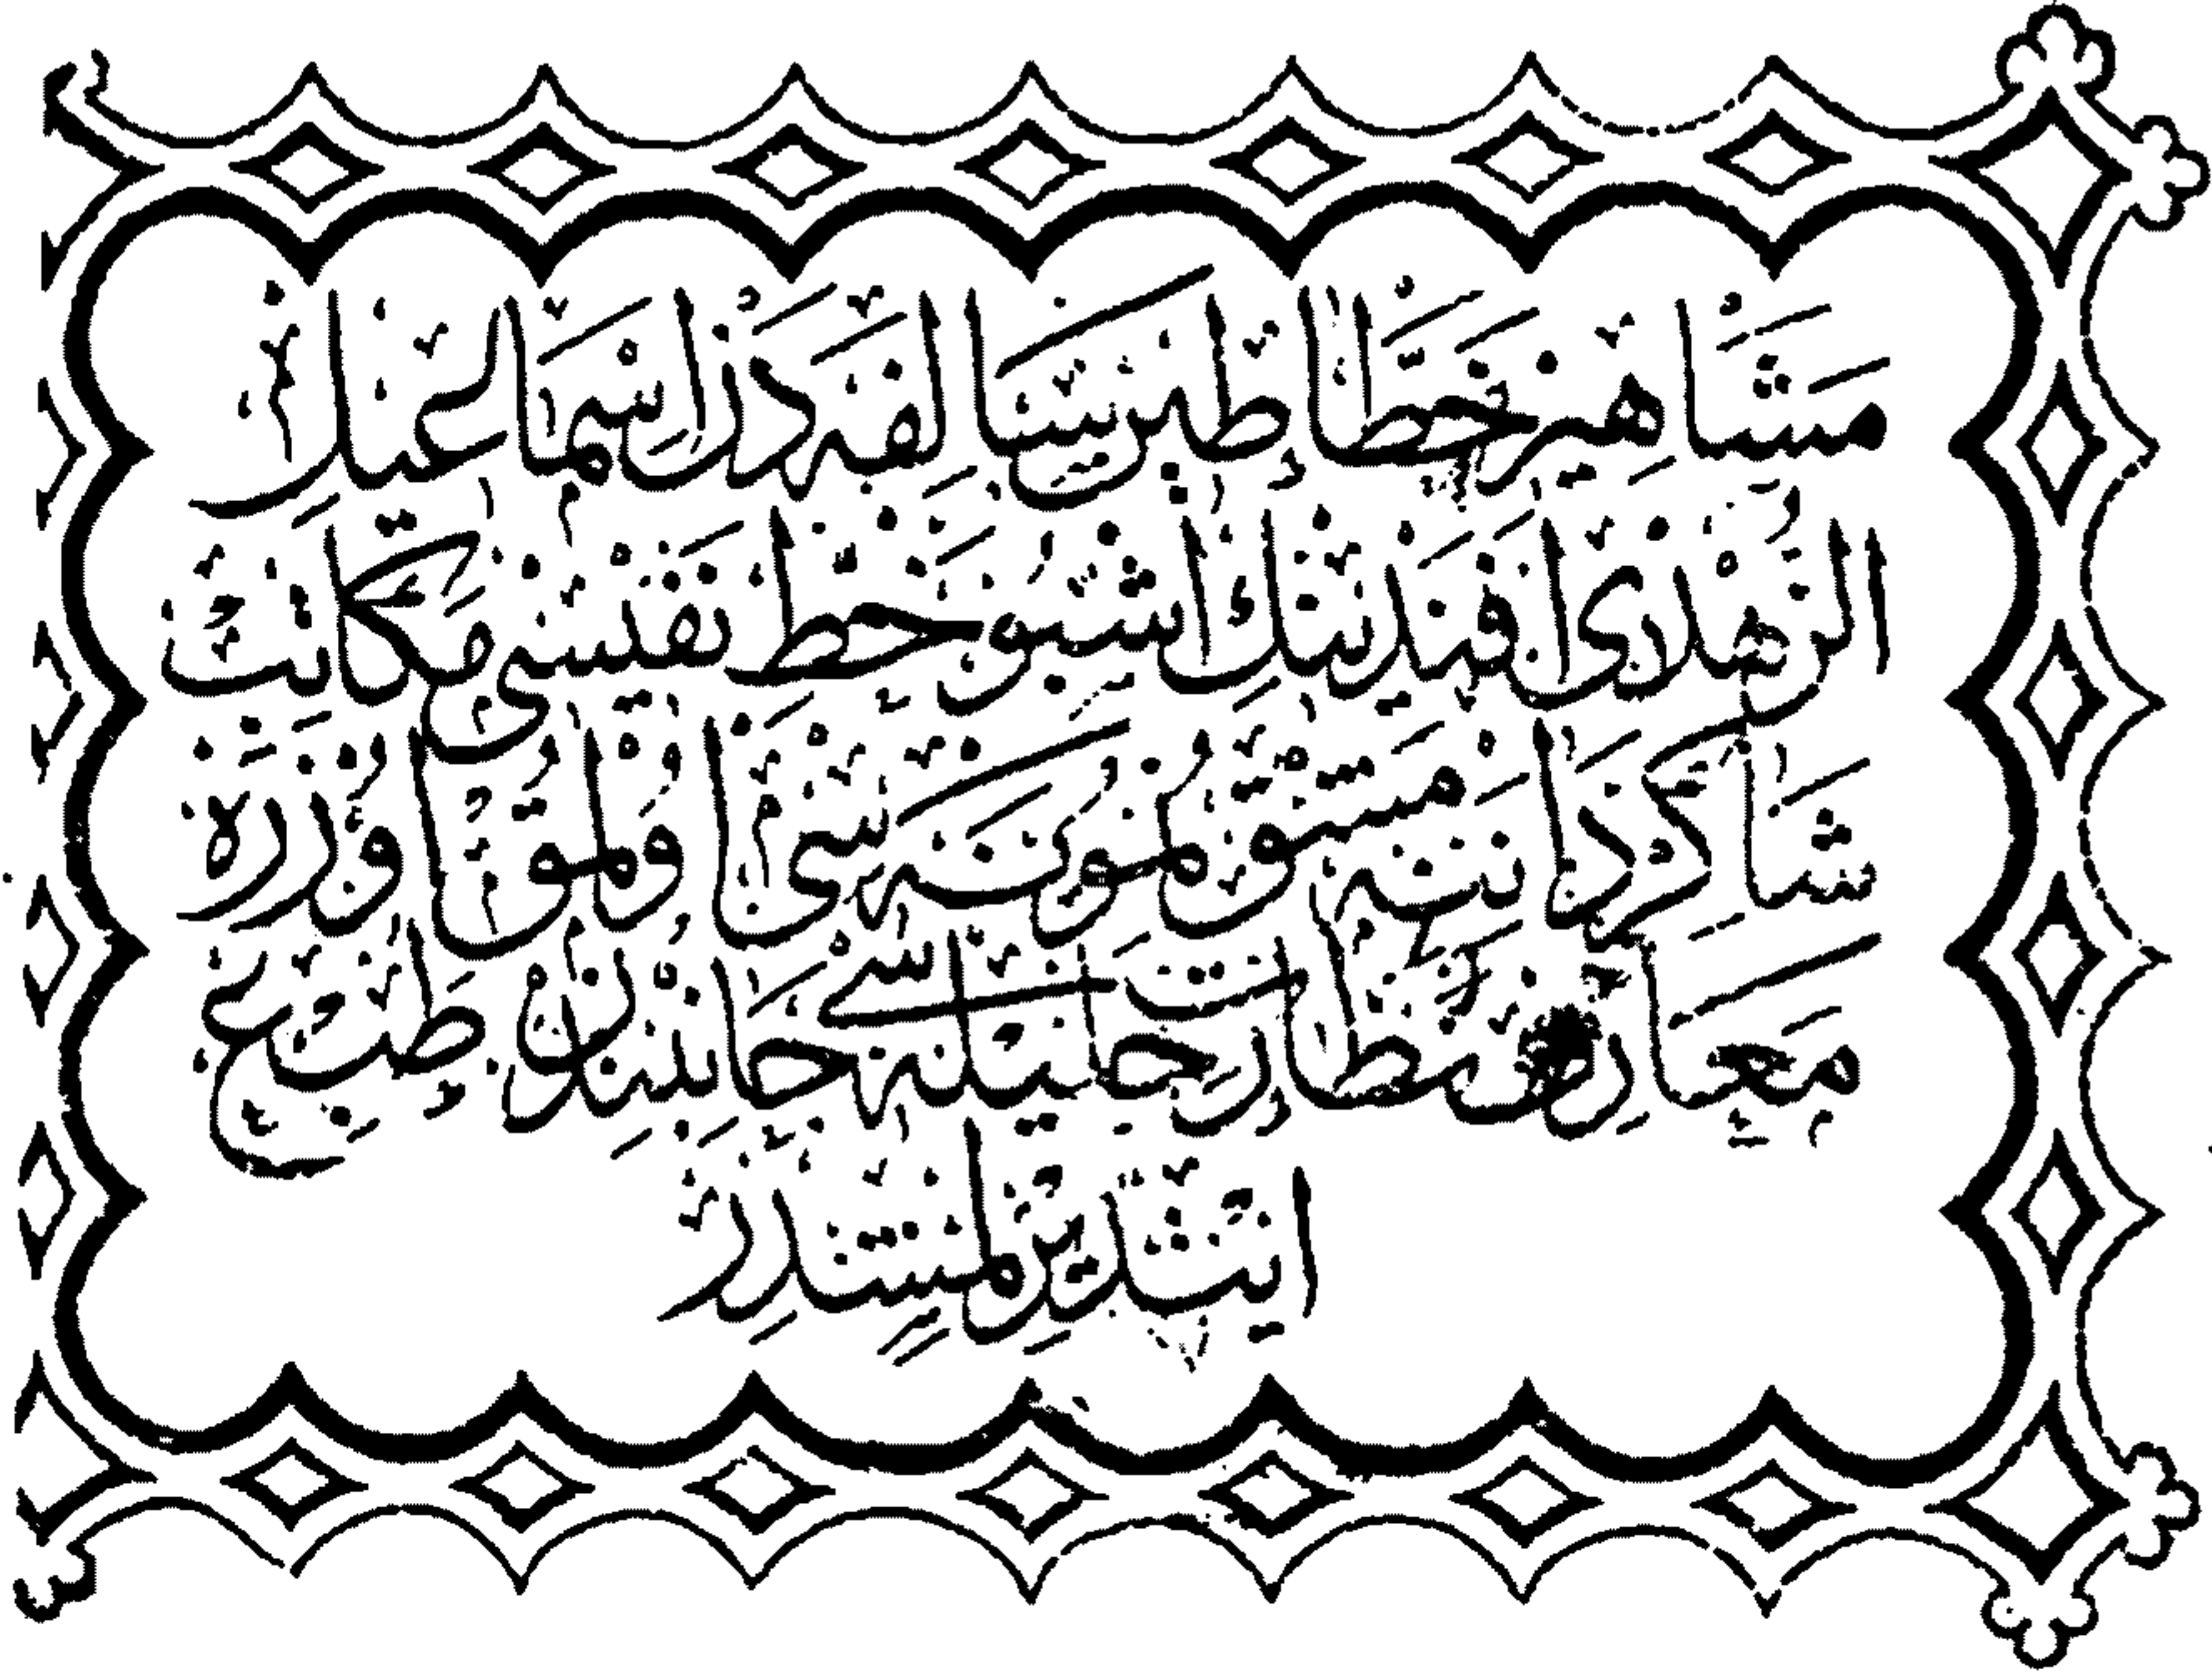 مشاهير خطاطين سالفه دن اسماعيل
الزهدى افندينك اشبو خط نفيسى مكاتب
شاكرداننه مشق و نمونه سى اولمق اوزره
معارف نظارت جليله سى جانبندن طبع
ايتديرلمشدر